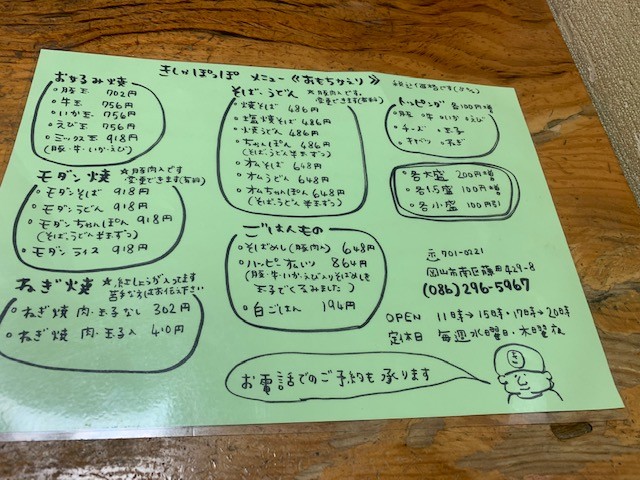 きしゃぽっぽ メニュー 《おもちかえり》
税込価格です(8%)
お好み焼
・豚玉 702円
・牛玉 756円
・いか玉 756円
・えび玉 756円
・ミックス玉 918円
(豚・牛・いか・えび)
モダン焼 ☆豚肉入です
変更できます(有料)
・モダンそば 918円
・モダンうどん 918円
・モダンちゃんぽん 918円
(そば、うどん半玉ずつ)
・モダンライス 918円
ねぎ焼 ☆紅しょうが入ってます
苦手な方はお伝え下さい
・ねぎ焼 肉・玉子なし 302円
・ねぎ焼 肉・玉子入 410円
そば、うどん ☆豚肉入です
変更できます(有料)
・焼そば 486円
・塩焼そば 486円
・焼うどん 486円
・ちゃんぽん 486円
(そば、うどん半玉ずつ)
・オムそば 648円
・オムうどん 648円
・オムちゃんぽん 648円
(そば、うどん半玉ずつ)
ごはんもの
・そばめし(豚肉入) 648円
・ハッピーオムイツ 864円
(豚・牛・いか・えび入りそばめしを
玉子でくるみました)
・白ごはん 194円
トッピング 各100円増
・豚・牛・いか・えび
・チーズ ・玉子
・キャベツ ・ねぎ
・各大盛 200円増
・各1.5盛 100円増
・各小盛 100円引
〒701-0221
岡山市南区藤田429-8
(086)296-5967
OPEN 11時→15時・17時→20時
定休日 毎週水曜日・木曜夜
お電話でのご予約も承ります
き